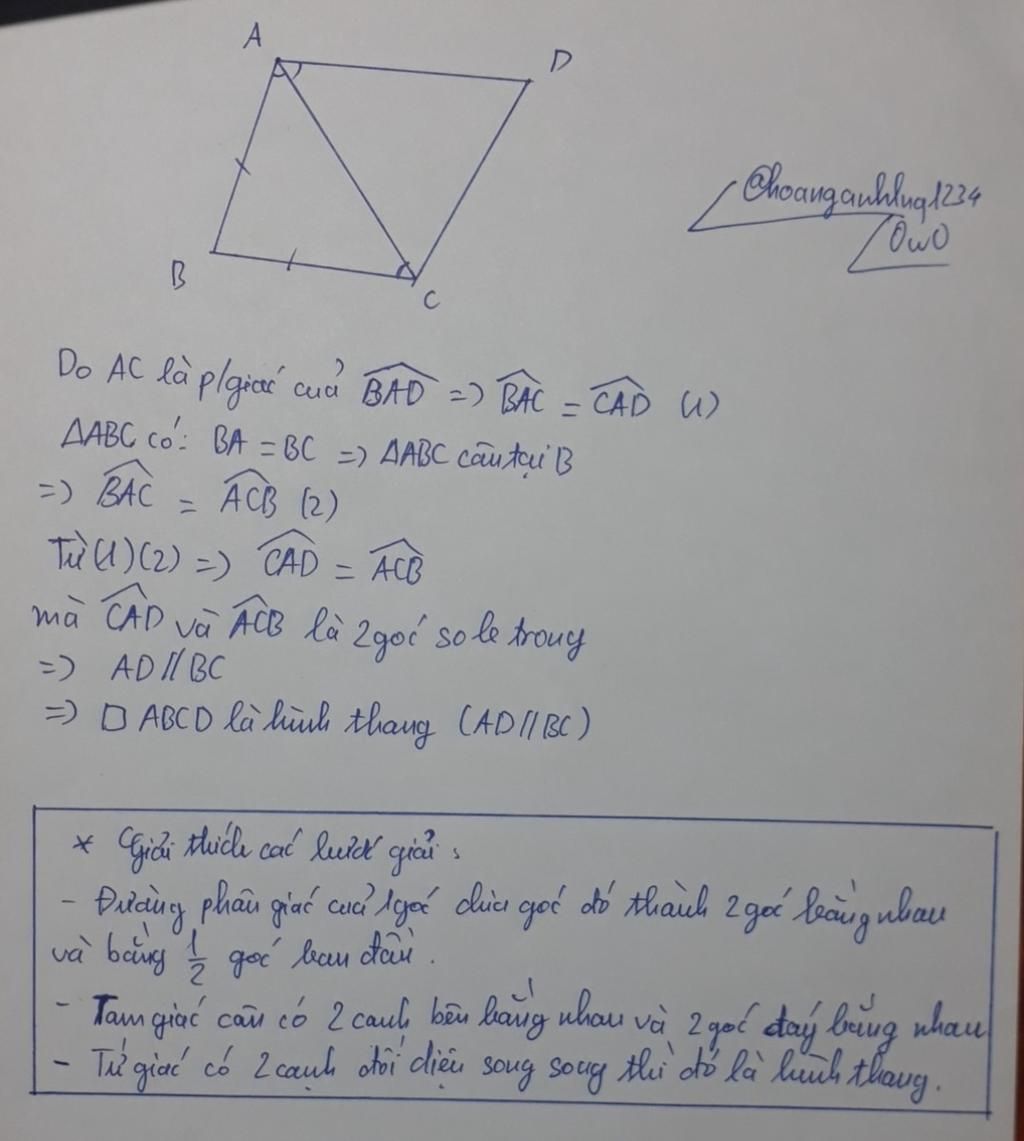 A
D
B
C
@hoanganhlnq1234
OwO
Do AC là p/giác của BAD => BAC = CAD (1)
∆ABC có: BA = BC => ∆ABC cân tại B
=> BAC = ACB (2)
Từ (1)(2) => CAD = ACB
mà CAD và ACB là 2 góc so le trong
=> AD // BC
=> □ ABCD là hình thang (AD // BC)
* Giải thích các bước giải:
- Đường phân giác của 1 góc chia góc đó thành 2 góc bằng nhau
và bằng 1/2 góc ban đầu.
- Tam giác cân có 2 cạnh bên bằng nhau và 2 góc đáy bằng nhau
- Tứ giác có 2 cạnh đối diện song song thì đó là hình thang.